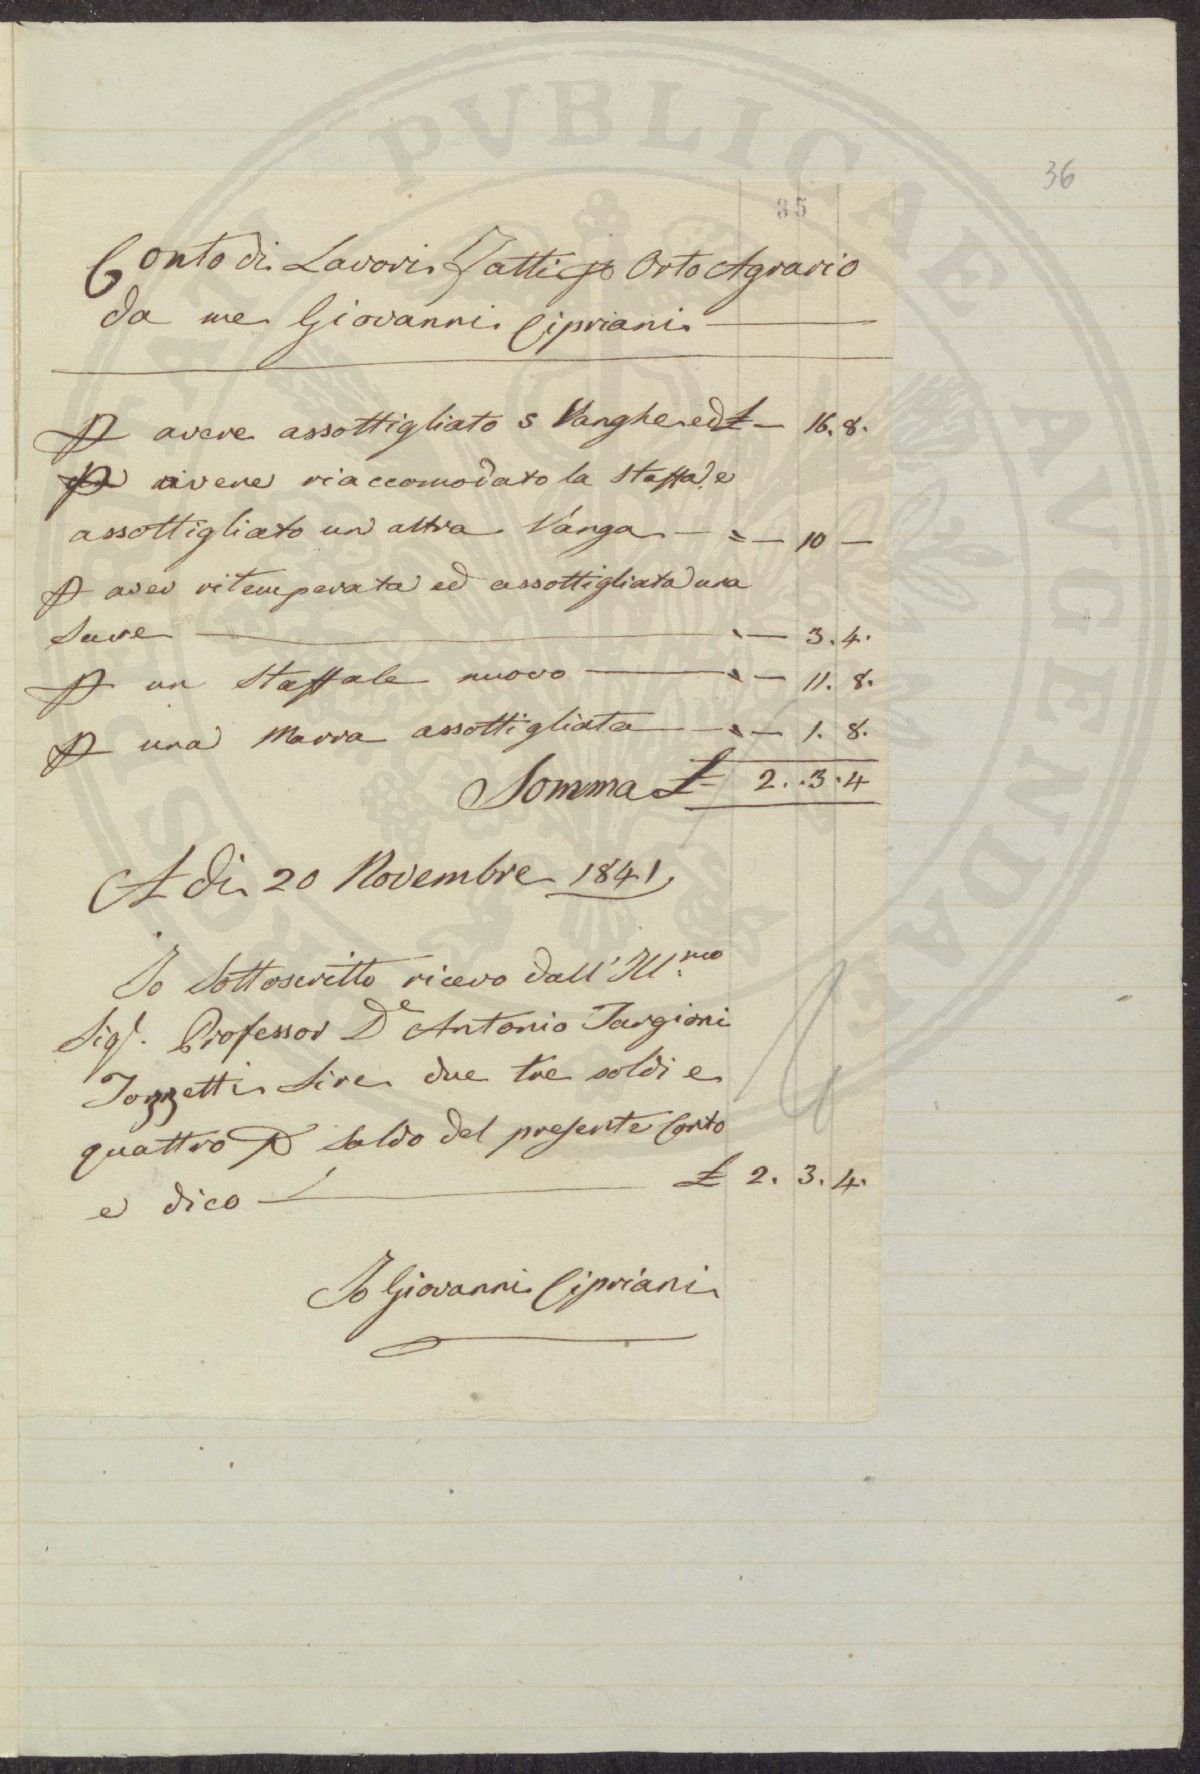 36
35
Conto di Lavori Fatti p Orto Agrario
da me Giovanni Cipriani
P avere assottigliato 5 Vanghe ed £ — 16. 8.
P avere riaccomodato la staffa e
assottigliato un altra Vanga — = — 10 —
P aver ritemperata ed assottigliata una
Scure — 3. 4.
P un staffale nuovo — 11. 8.
P una marra assottigliata — 1. 8.
Somma £ 2. 3. 4
A di 20 Novembre 1841,
Io Sottoscritto ricevo dall' Ill.mo
Sigr. Professor De Antonio Targioni
Tozzetti Lire due tre soldi e
quattro P Saldo del presente Conto
e dico — £ 2. 3. 4.
Io Giovanni Cipriani
PVBLICAE